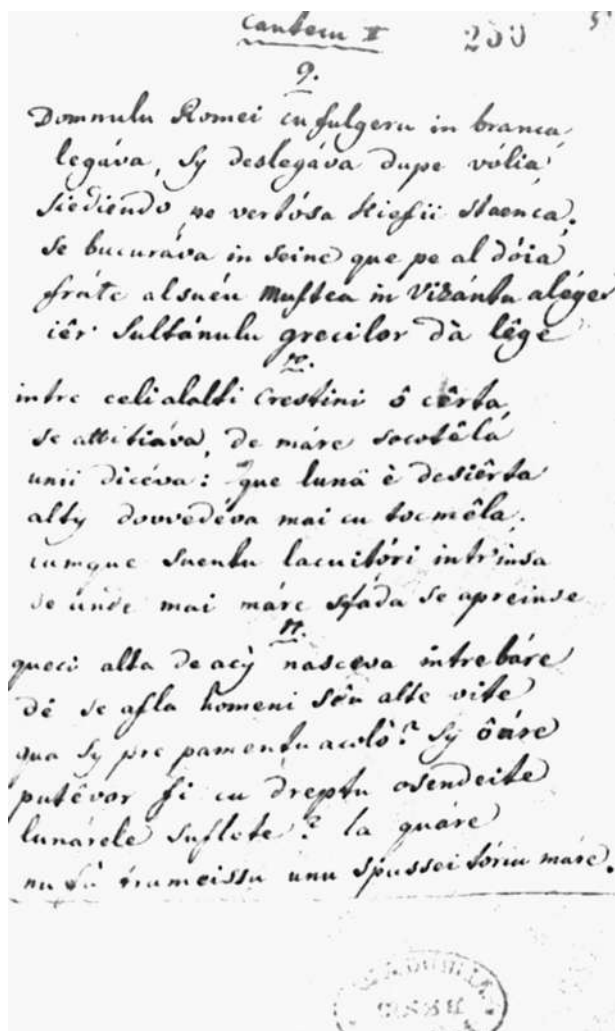 Cantecu II 200 5
9.
Domnulu Romei cu fulgeru in branca,
legáva, sy deslegáva dupe vólia
siediendo pe vertósa Kiefii staenca.
se bucuráva in seine que pe al dóia
fráte al suéu Muftea in Vizántu aléger
iêr Sultánulu grecilor dà lêge
10.
intre celialalti Crestini ô cêrta,
se attitiáva, de máre socotêlá
unii dicéva: que lună è desiêrta
alty dovvedéva mai cu tocmêla,
cumque suentu lacuitóri intr'insa
de unde mai máre sfáda se apreinse
11.
queci alta de acỳ nasceva intrebáre
dê se afla homeni sêu alte vite
qua sy pre pamentu acolò? Sy ôáre
putêvor fi cu dreptu osendeite
lunárele suflete? la quáre
nu fù trameissu unu spasseitóriu máre.